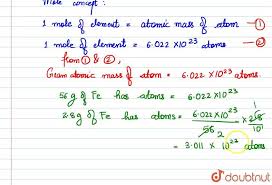 Mole concept :
1 mole of element = atomic mass of atom — ①
1 mole of element = 6.022 X10²³ atoms — ②
from ① & ②,
Gram atomic mass of atom = 6.022 X10²³ atoms.
56g of Fe has atoms = 6.022 X10²³
2.8g of Fe has atoms = 6.022 X10²³ / 56 2 X 2.8 1 / 10
= 3.011 X 10²² atoms
doubtnut